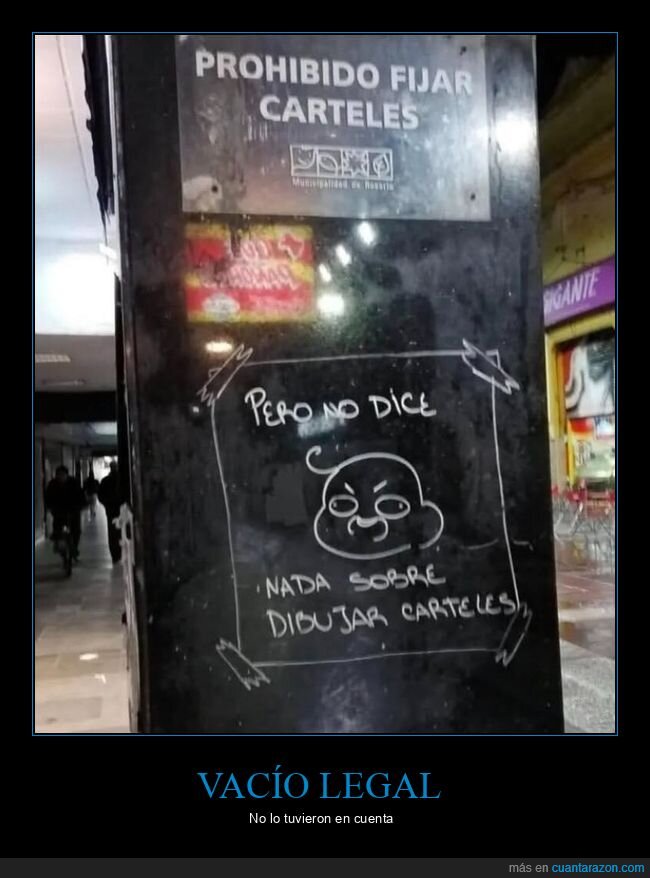 PROHIBIDO FIJAR
CARTELES
Municipalidad de Rosario
GIGANTE
PERO NO DICE
NADA SOBRE
DIBUJAR CARTELES
VACÍO LEGAL
No lo tuvieron en cuenta
más en cuantarazon.com